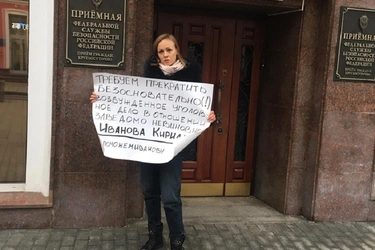 ПРИЁМНАЯ
ФЕДЕРАЛЬНОЙ
СЛУЖБЫ
БЕЗОПАСНОСТИ
РОССИЙСКОЙ
ФЕДЕРАЦИИ
ПРИЁМНАЯ
ФЕДЕРАЛЬНОЙ
СЛУЖБЫ
БЕЗОПАСНОСТИ
РОССИЙСКОЙ
ФЕДЕРАЦИИ
ТРЕБУЕМ ПРЕКРАТИТЬ
БЕЗОСНОВАТЕЛЬНО(!)
ВОЗБУЖДЕННОЕ УГОЛОВ
НОЕ ДЕЛО В ОТНОШЕНИИ
ЗАВЕДОМО
ИВАНОВА